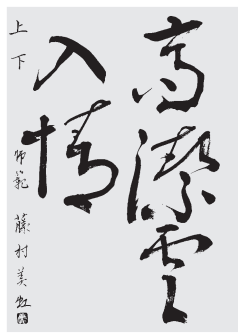 高潔雲
入情
上下 師範 藤村美虹